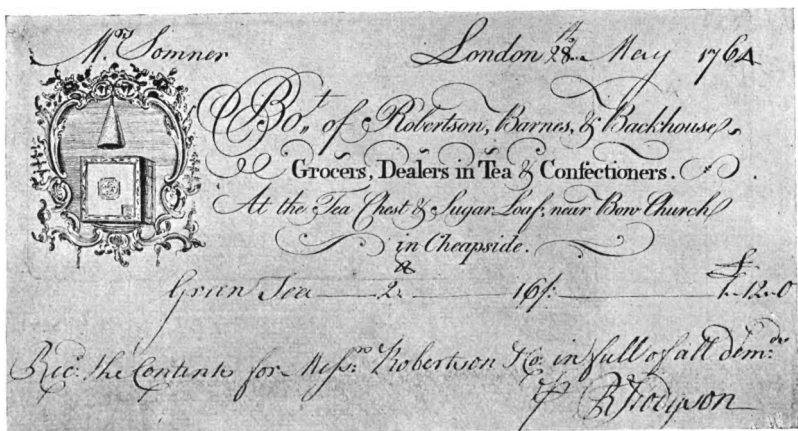 Mrs. Somner London 28th May 1764
Bot. of Robertson, Barnes, & Backhouse,
Grocers, Dealers in Tea & Confectioners.
At the Tea Chest & Sugar Loaf, near Bow Church
in Cheapside.
£
Green Tea 2 lb 16/: 1-12-0
Recd. the Contents for Messrs. Robertson & Co. in full of all demds.
R